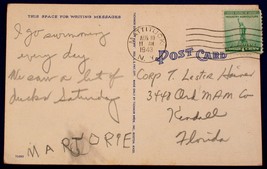 THIS SPACE FOR WRITING MESSAGES
I go swimming
every day
We saw a lot of
ducks Saturday
MARJORIE
AUG
11 AM
1943
N.Y.
POST CARD
Corp T. Leslie
3448 Ord M.A.M. Co
Kendall
Florida